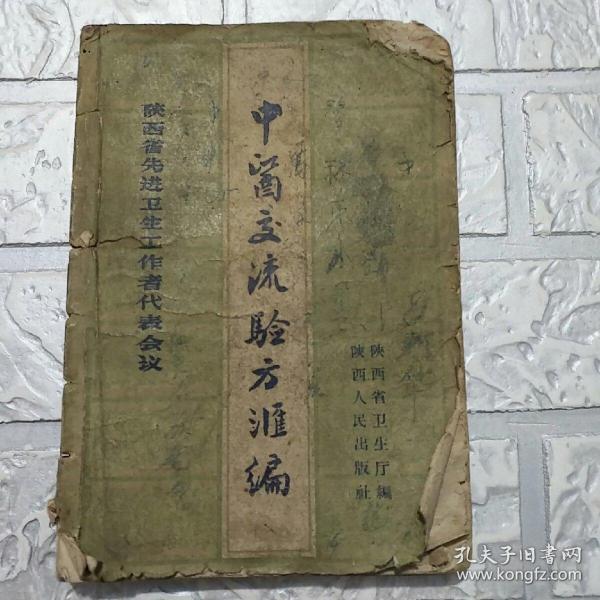 陕西省先进卫生工作者代表会议
中医交流验方滙编
陕西省卫生厅编
陕西人民出版社
孔夫子旧书网
www.kongfz.com